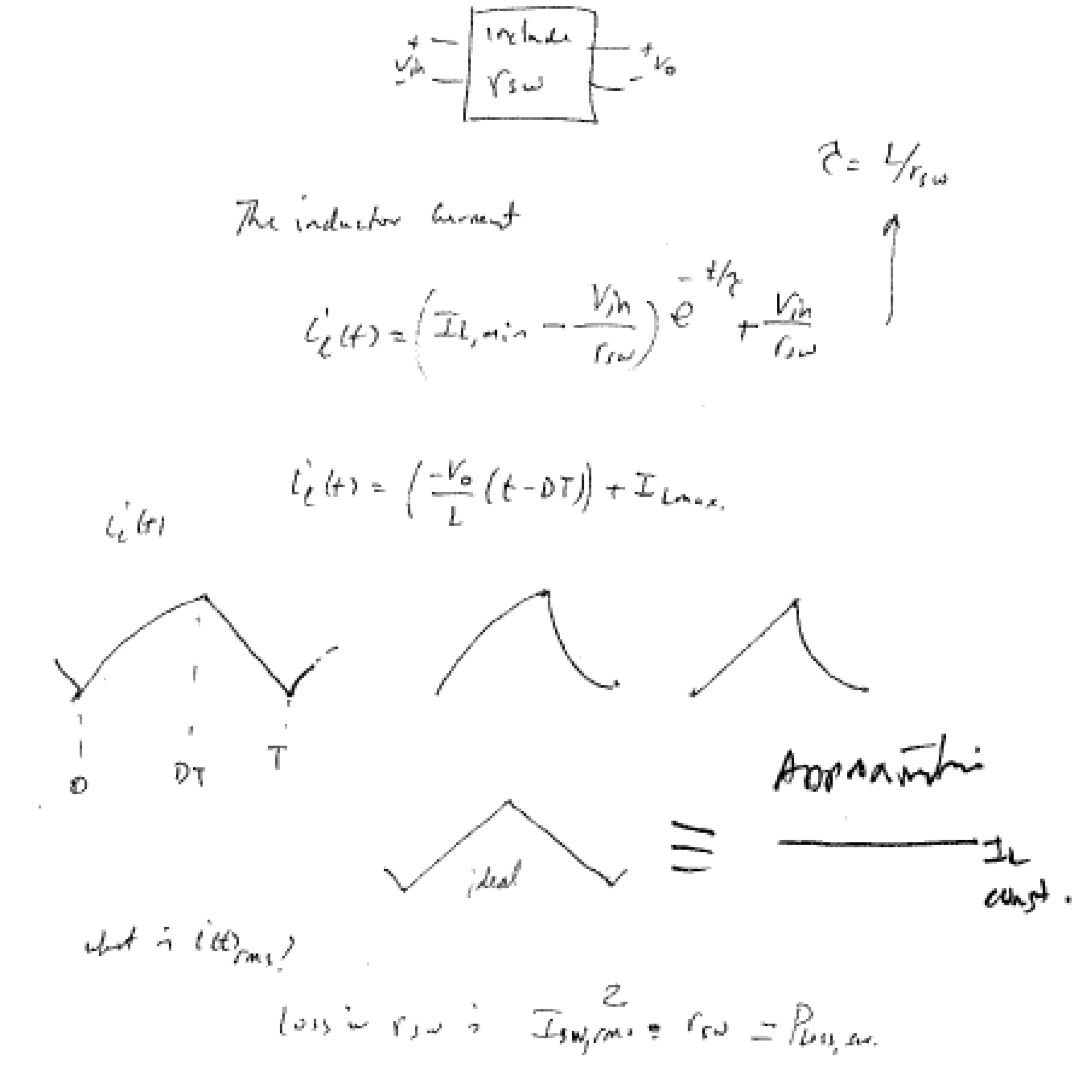 + include + V₀
Vin rsw -
-
τ = L/rsw
The inductor current
i_L(t) = (I_L,min - Vin/rsw) e^(-t/τ) + Vin/rsw
i_L(t) = (-V₀/L (t-DT)) + I_Lmax.
i_L(t)
0 DT T
ideal ≡ I_L
const.
what is i(t)rms?
Loss in rsw is I²sw,rms • rsw = Ploss,sw.